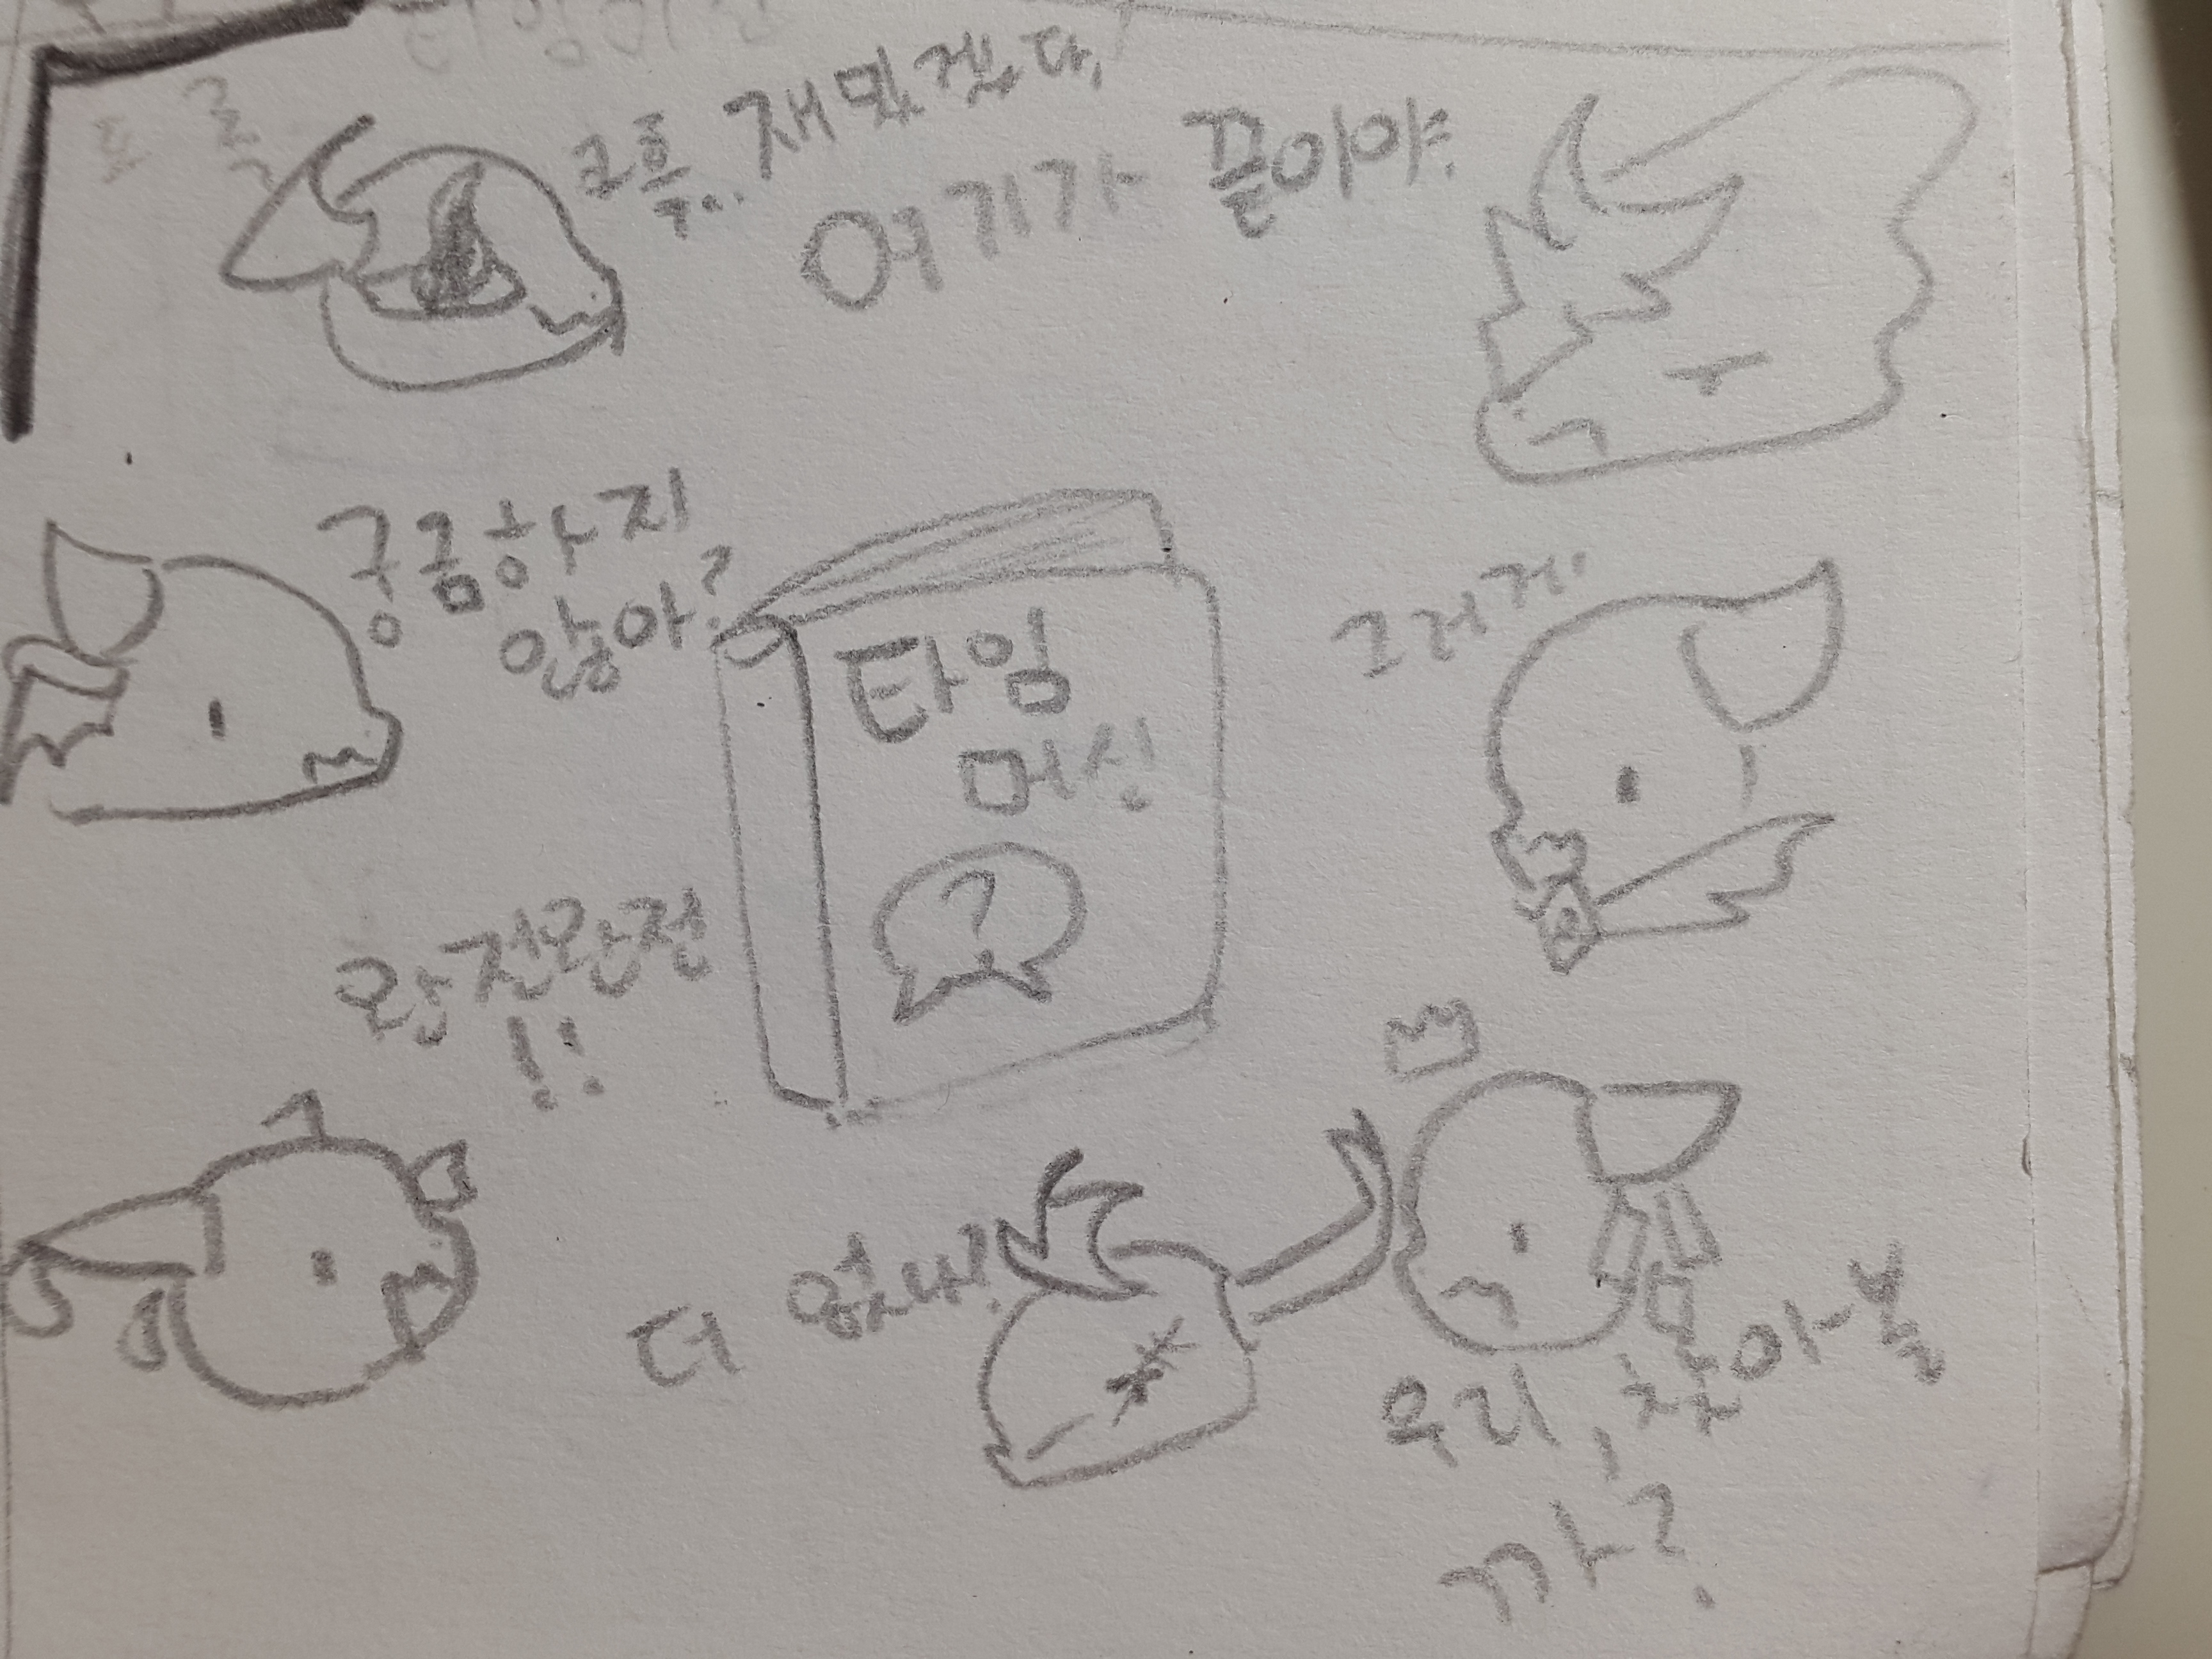 크흠.. 재밌겠다.
여기가 끝이야.
궁금하지
않아?
그러게.
타임
머신
?
완전완전
!!
더 없나?
우리, 찾아볼
까?